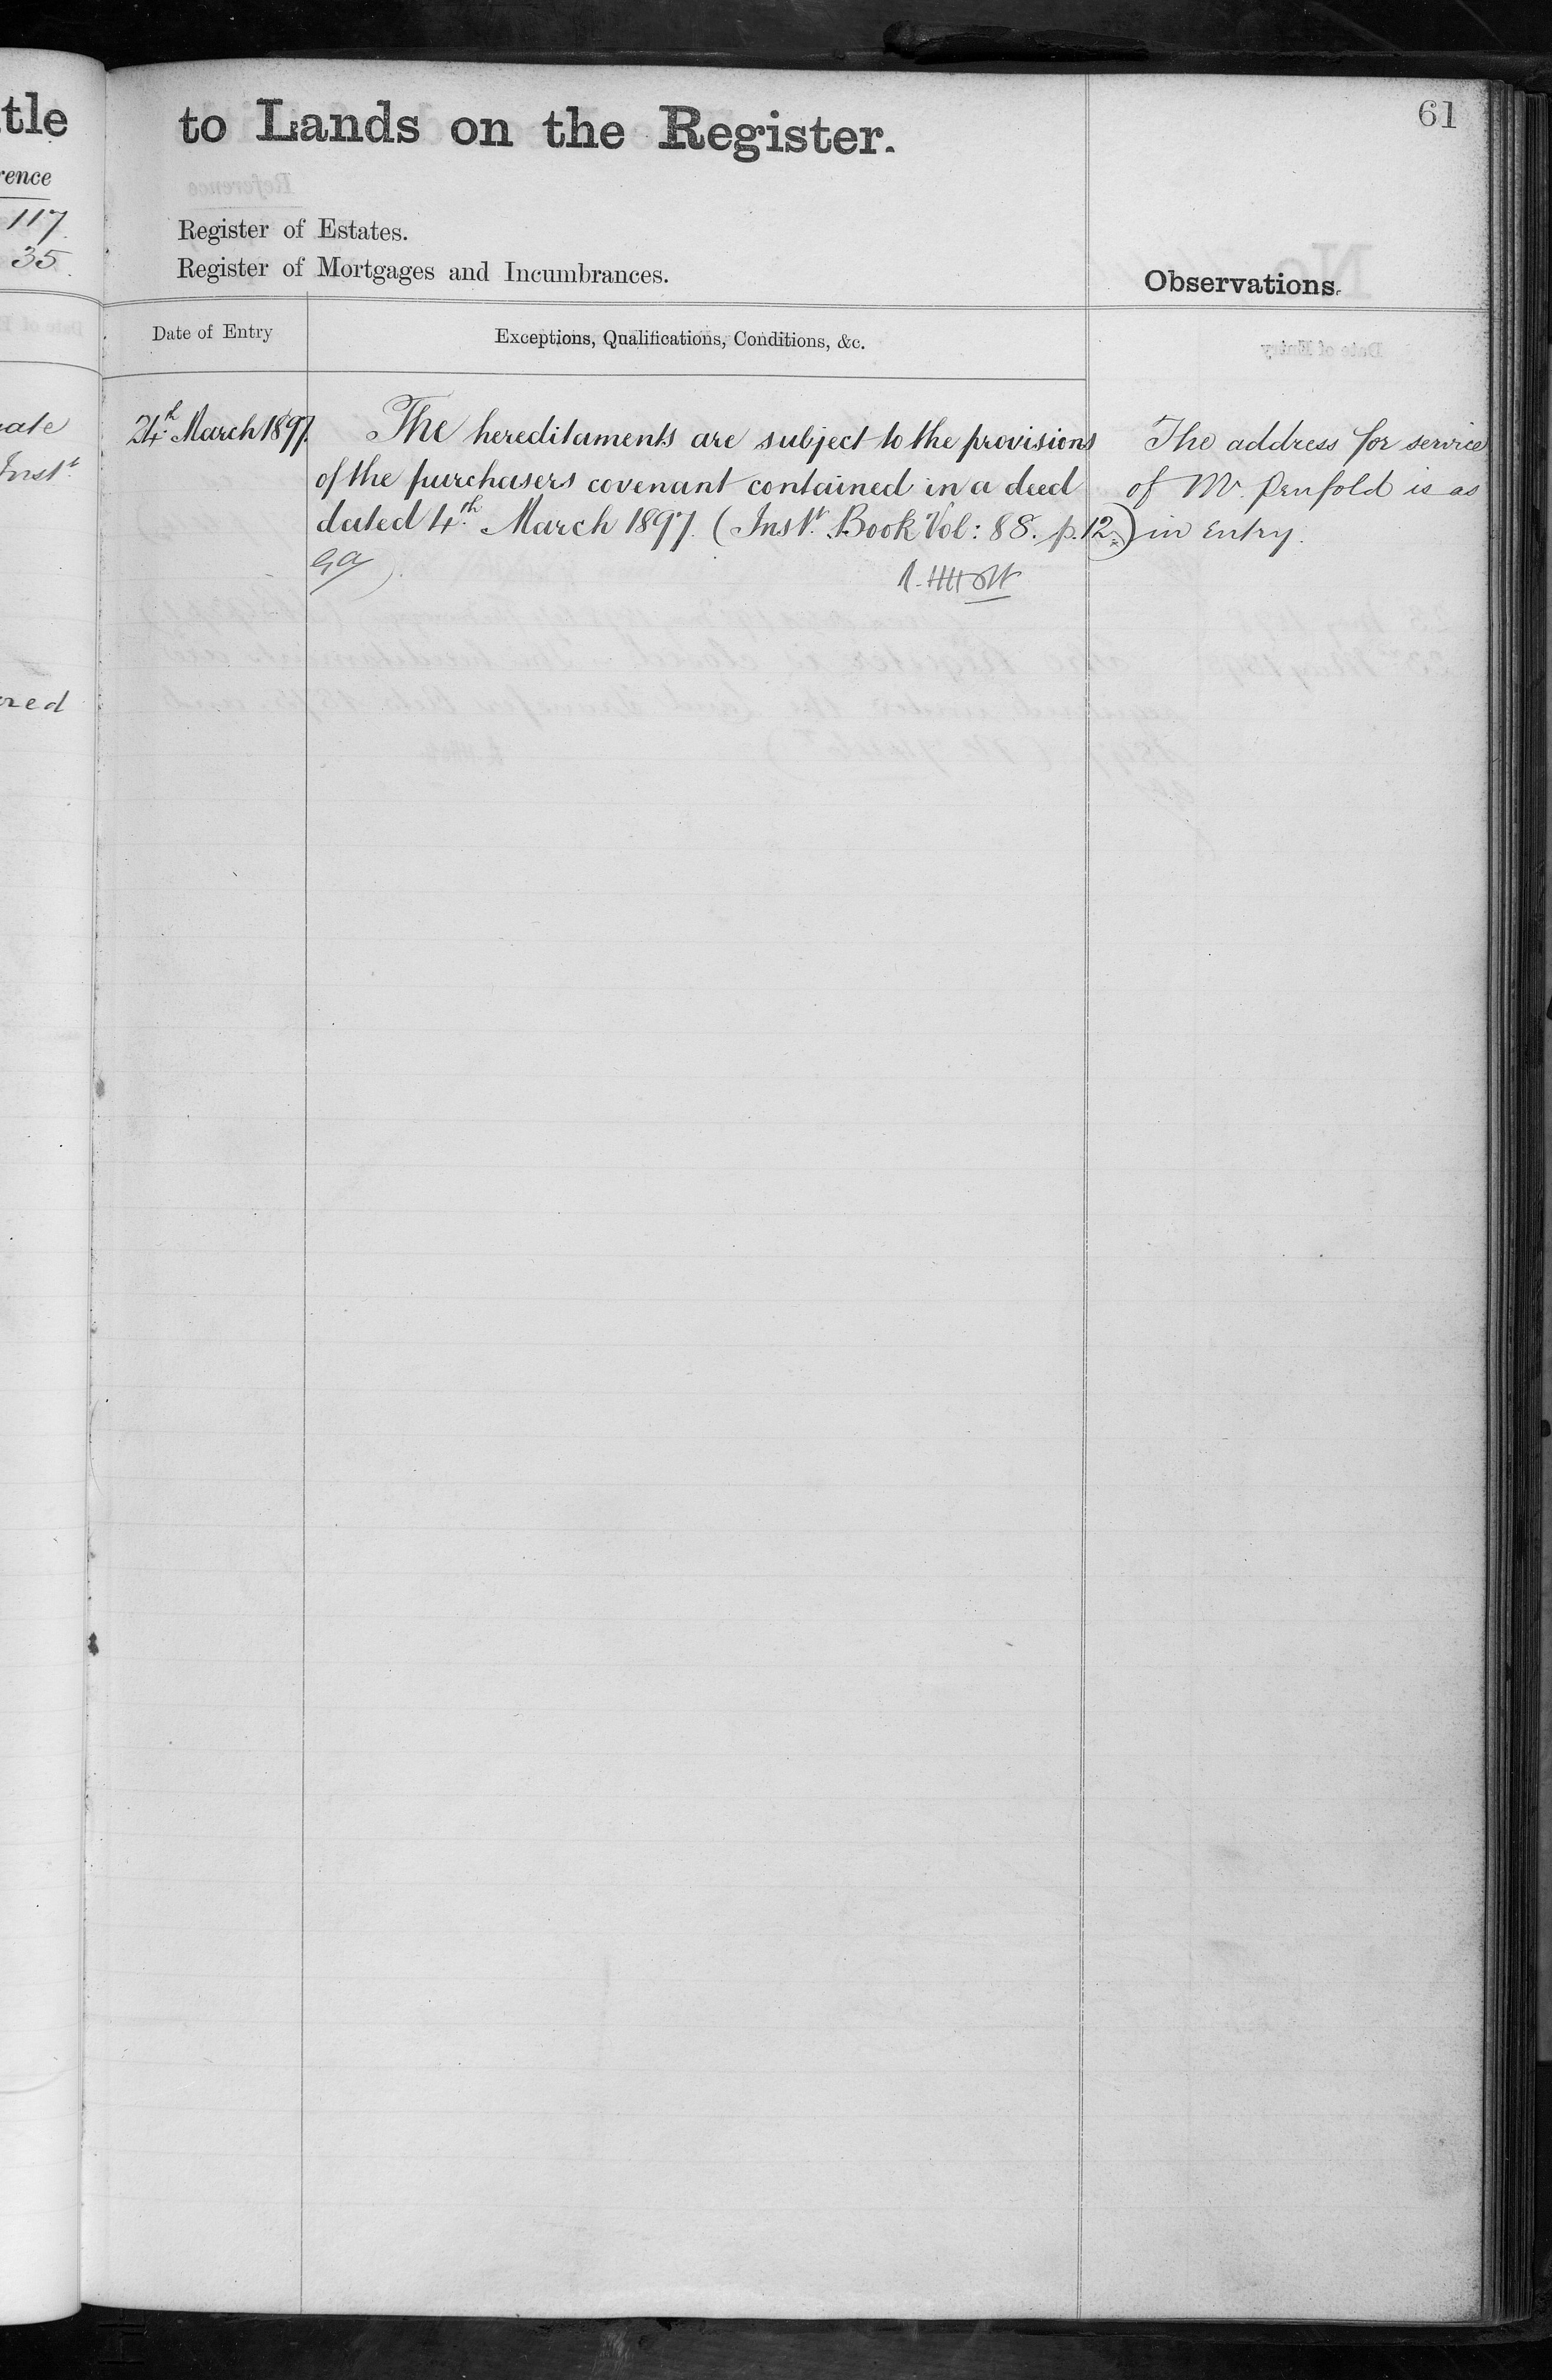 tle
rence
117.
35.
ate
Inst.t
red
to Lands on the Register.
61
Register of Estates.
Register of Mortgages and Incumbrances.
Observations.
Date of Entry
Exceptions, Qualifications, Conditions, &c.
24th March 1897.
The hereditaments are subject to the provisions
of the purchasers covenant contained in a deed
dated 4th March 1897. (Inst.t Book Vol: 88. p. 12.)
The address for service
of Mr. Penfold is as
in Entry.